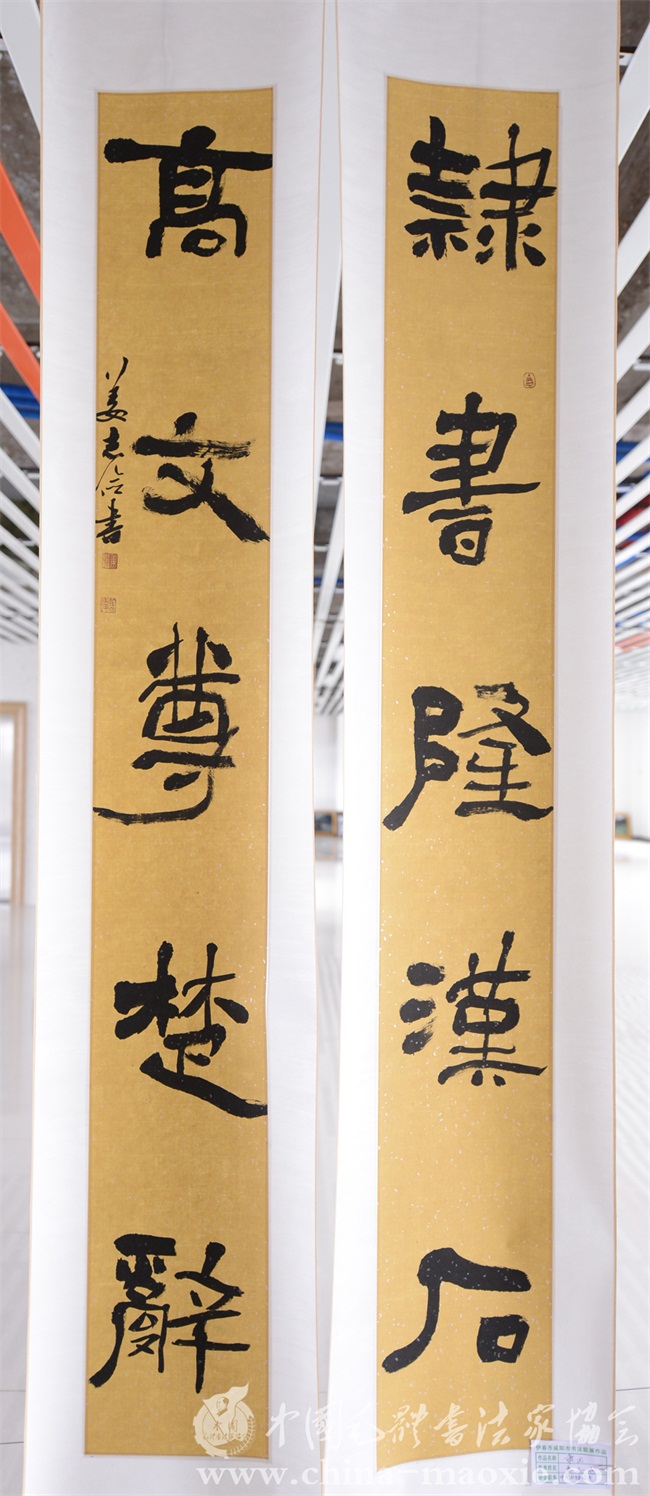 隸書隆漢石
高文尊楚辭
姜志信書
中国毛体书法家协会
www.china-maoxie.com